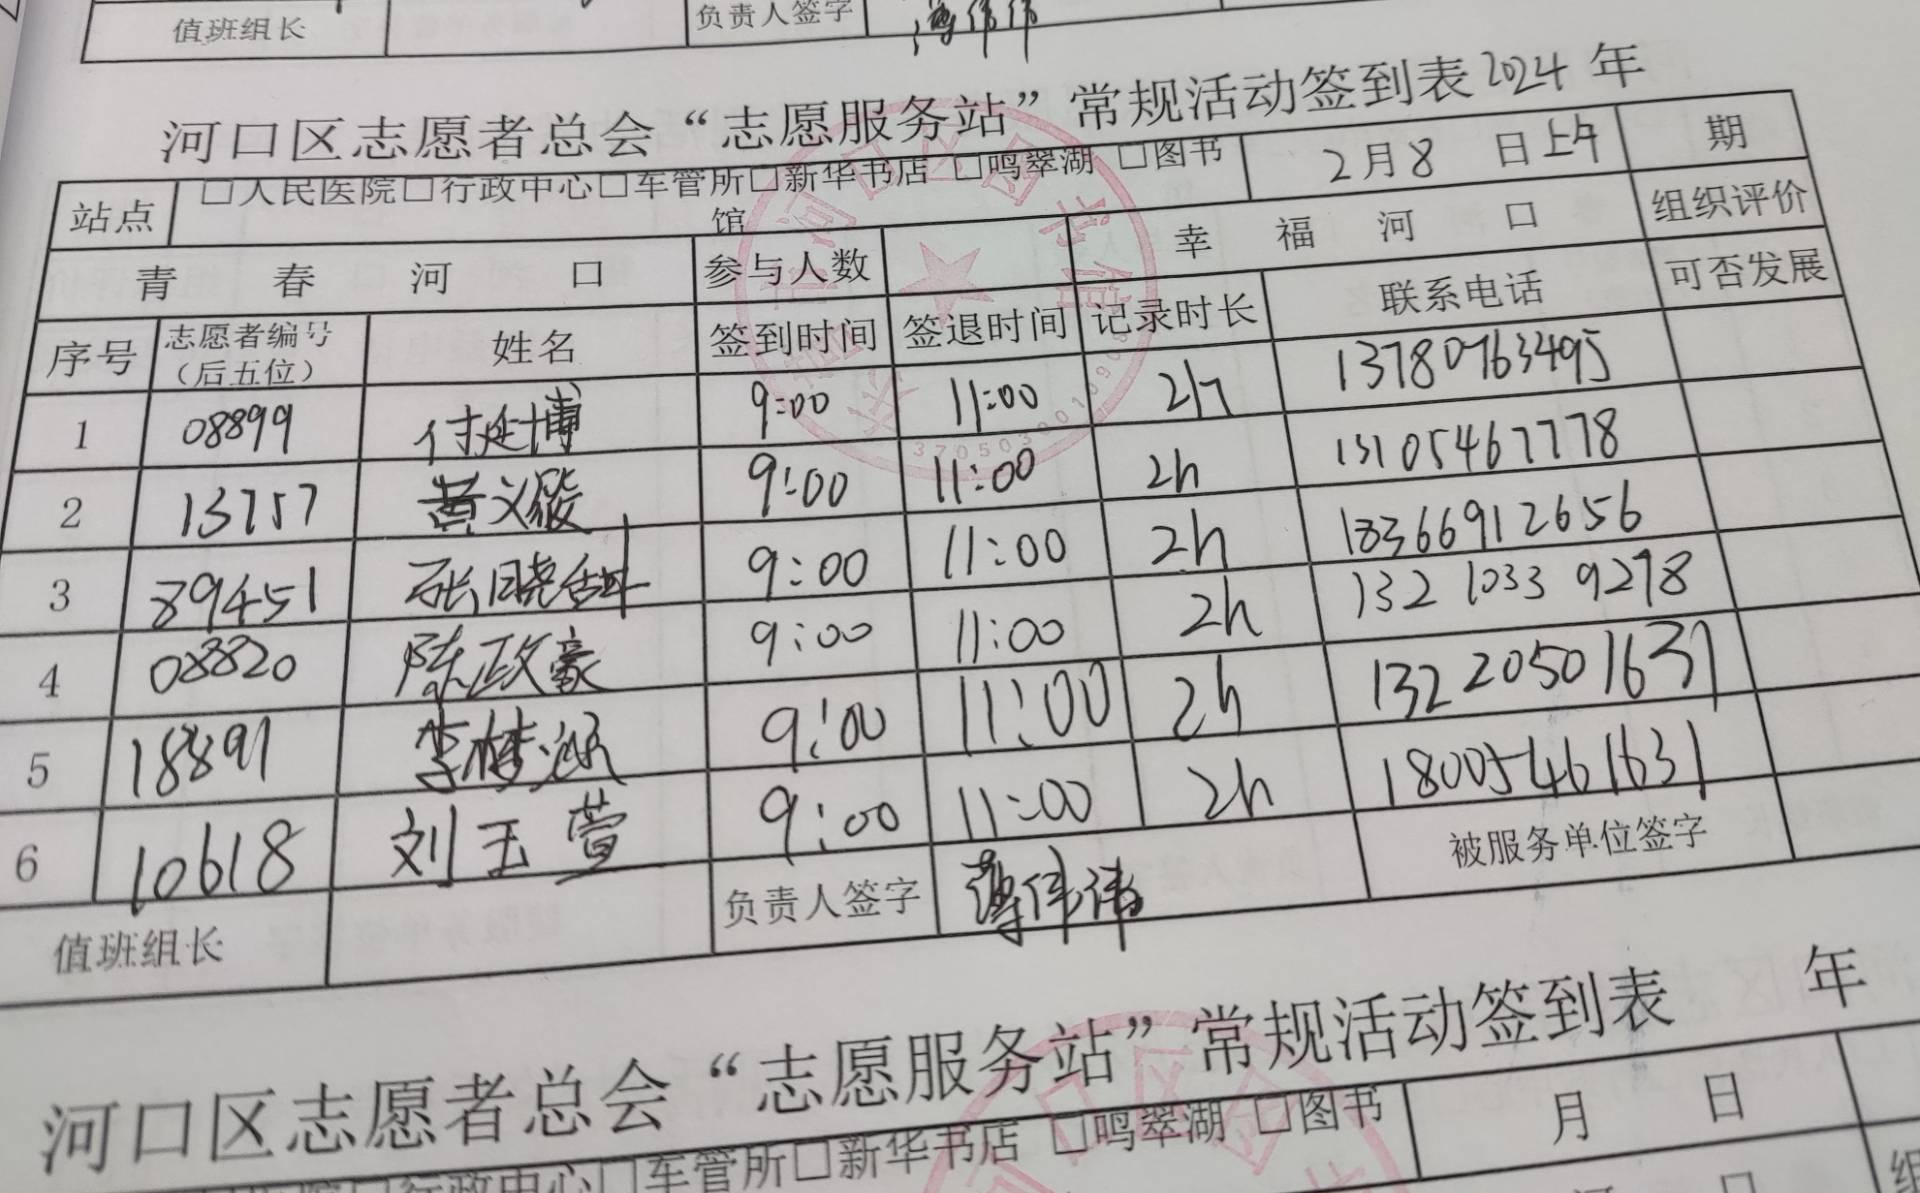 值班组长 负责人签字
河口区志愿者总会“志愿服务站”常规活动签到表2024年
站点 □人民医院□行政中心□车管所□新华书店 □鸣翠湖 □图书馆 2月8 日上午 期
青春河口 参与人数 幸福河口 组织评价
序号 志愿者编号（后五位） 姓名 签到时间 签退时间 记录时长 联系电话 可否发展
1 08899 付延博 9:00 11:00 2h 13780763495
2 13757 黄义 9:00 11:00 2h 13105467778
3 89451 张晓 9:00 11:00 2h 18366912656
4 08820 陈政豪 9:00 11:00 2h 132 1033 9278
5 18891 李梦涵 9:00 11:00 2h 13220501631
6 10618 刘玉萱 9:00 11:00 2h 18005461631
值班组长 负责人签字 薄伟伟 被服务单位签字
河口区志愿者总会“志愿服务站”常规活动签到表 年
行政中心□车管所□新华书店 □鸣翠湖 □图书 月 日
3705030010960